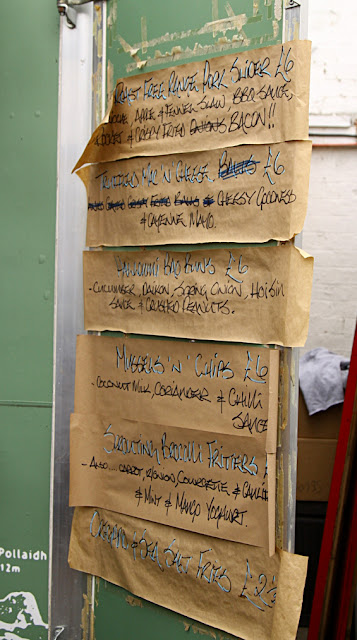 ROAST FREE RANGE PORK SLIDER £6
APPLE & FENNEL SLAW BBQ SAUCE,
& CRISPY FRIED BACON!!
TRUFFLED MAC 'N' CHEESE £6
CHEESY GOODNESS
& CAYENNE MAYO.
BAO BUNS £6
- CUCUMBER, DAIKON, SPRING ONION, HOISIN
SAUCE & CRUSTED PEANUTS.
MUSSELS 'N' CHIPS £6
- COCONUT MILK, CORIANDER & CHILLI
SAUCE
SPROUTING BROCCOLI FRITTERS
- AND... CARROT, COURGETTE, &
& MINT & MANGO YOGHURT.
& SEA SALT FRIES £2.
Pollaidh
12m